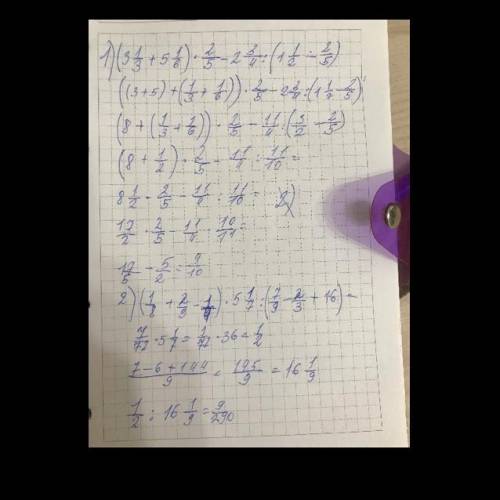 1) (3 1/3 + 5 1/6) · 2/5 - 2 3/4 : (1 1/2 - 2/5)
((3+5) + (1/3 + 1/6)) · 2/5 - 2 3/4 : (1 1/2 - 2/5)
(8 + (1/3 + 1/6)) · 2/5 - 11/4 : (3/2 - 2/5)
(8 + 1/2) · 2/5 - 11/4 : 11/10 =
8 1/2 · 2/5 - 11/4 : 11/10 = 2)
17/2 · 2/5 - 11/4 · 10/11 =
17/5 - 5/2 = 9/10
2) (1/8 + 2/3 - ) · 5 1/7 : (7/9 - 2/3 + 16) =
7/72 · 5 1/7 = 1/72 · 36 = 1/2
7-6+144/9 = 145/9 = 16 1/9
1/2 : 16 1/9 = 9/290